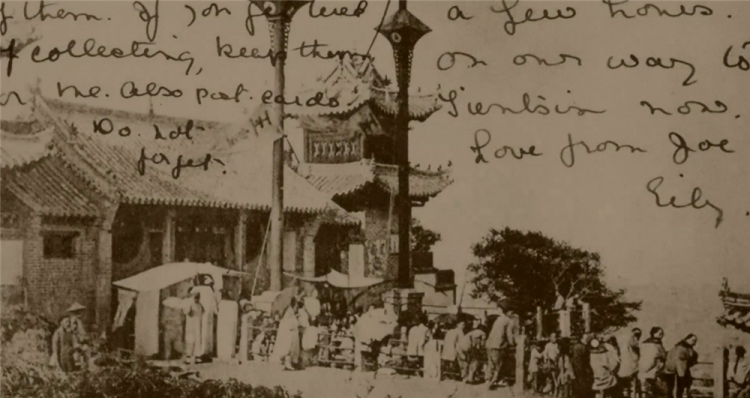 of them. If you get tired
of collecting, keep them
for me. Also post-cards.
Do not
forget.
a few hours.
on our way to
Tientsin now.
Love from Joe
Eily